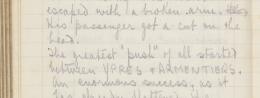 escaped with a broken arm.
His passenger got a cut on the
head.
The greatest "push" of all started
between YPRES & ARMENTIERS.
An enormous success, as it
has already